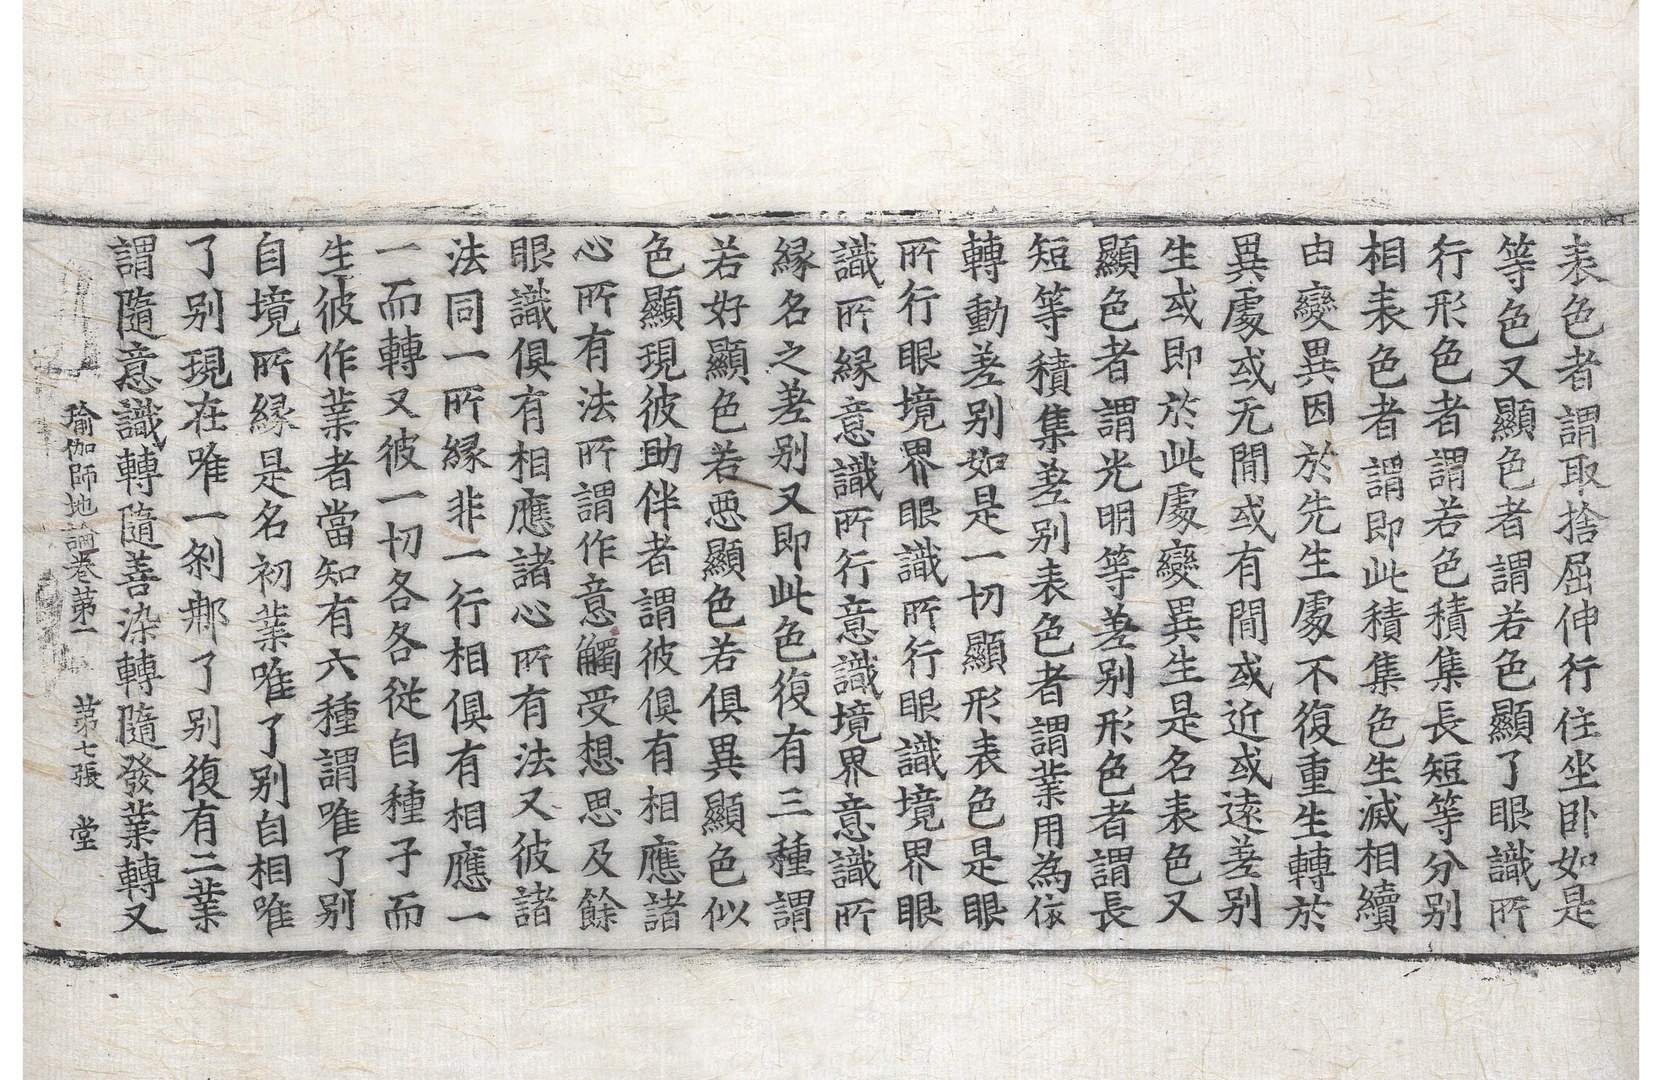 表色者謂取捨屈伸行住坐卧如是
等色又顯色者謂若色顯了眼識所
行形色者謂若色積集長短等分别
相表色者謂即此積集色生滅相續
由變異因於先生處不復重生轉於
異處或无閒或有閒或近或遠差别
生或即於此處變異生是名表色又
顯色者謂光明等差别形色者謂長
短等積集差别表色者謂業用為依
轉動差别如是一切顯形表色是眼
所行眼境界眼識所行眼識境界眼
識所緣意識所行意識境界意識所
緣名之差别又即此色復有三種謂
若好顯色若惡顯色若俱異顯色似
色顯現彼助伴者謂彼俱有相應諸
心所有法所謂作意觸受想思及餘
眼識俱有相應諸心所有法又彼諸
法同一所緣非一行相俱有相應一
一而轉又彼一切各各從自種子而
生彼作業者當知有六種謂唯了别
自境所緣是名初業唯了别自相唯
了别現在唯一刹那了别復有二業
謂隨意識轉隨善染轉隨發業轉又
瑜伽師地論卷苐一 苐七張 堂